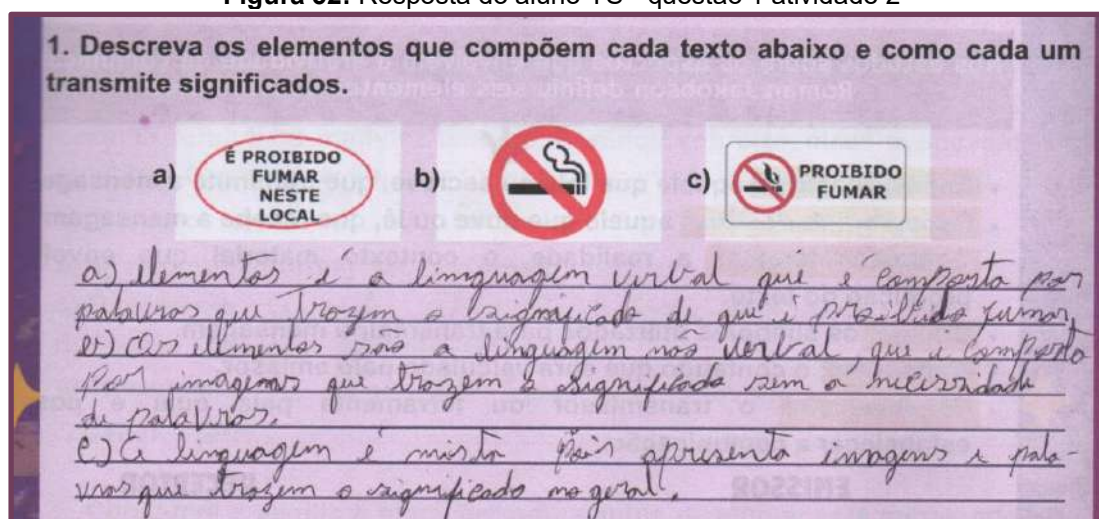 1. Descreva os elementos que compõem cada texto abaixo e como cada um
transmite significados.
a) É PROIBIDO
FUMAR
NESTE
LOCAL
b)
c) PROIBIDO
FUMAR
a) elementos e a linguagem verbal que e composta por
palavras que trazem o significado de que é proibido fumar,
b) Os elementos são a linguagem não verbal, que é composto
por imagens que trazem o significado sem a necessidade
de palavras.
c) A linguagem é mista pois apresenta imagens e pala-
vras que trazem o significado no geral.
EMISSOR